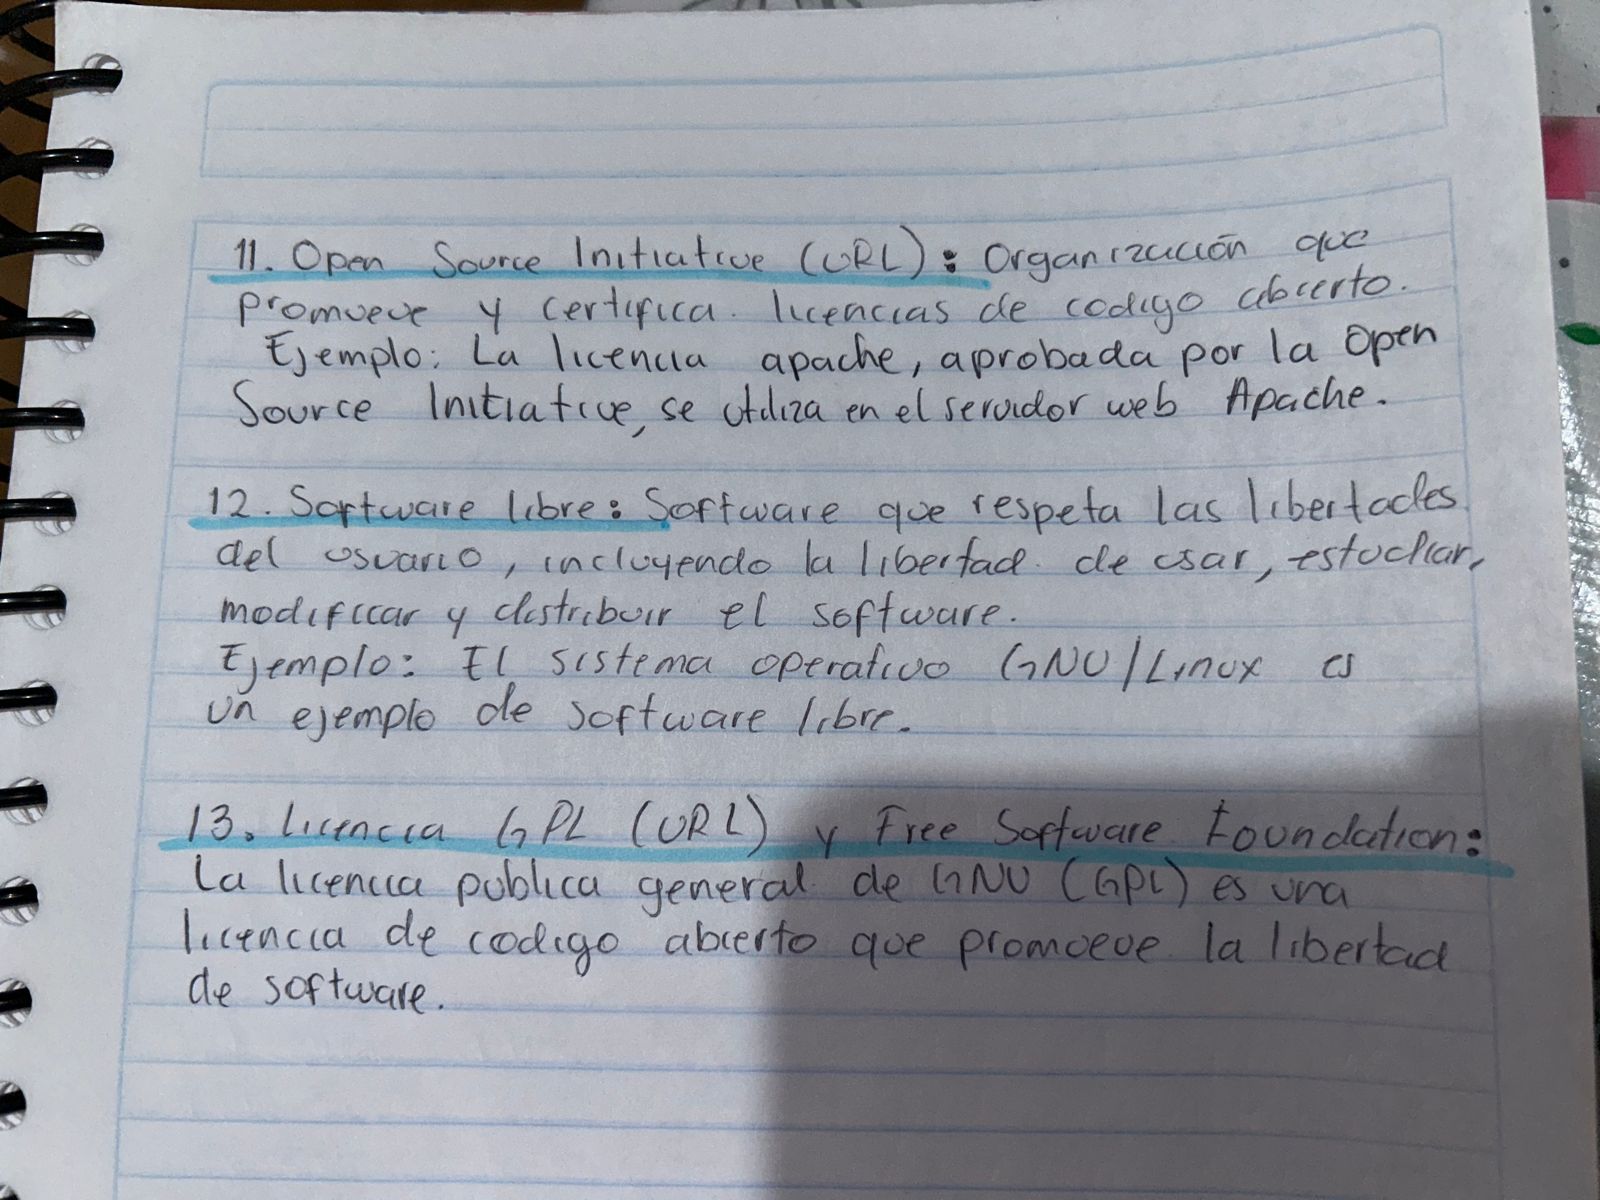 11. Open Source Initiative (URL): Organización que
promueve y certifica licencias de codigo abierto.
Ejemplo: La licencia apache, aprobada por la Open
Source Initiative, se utiliza en el servidor web Apache.
12. Software libre: Software que respeta las libertades
del usuario, incluyendo la libertad de usar, estudiar,
modificar y distribuir el software.
Ejemplo: El sistema operativo GNU/Linux es
un ejemplo de software libre.
13. Licencia GPL (URL) y Free Software Foundation:
La licencia publica general de GNU (GPL) es una
licencia de codigo abierto que promueve la libertad
de software.